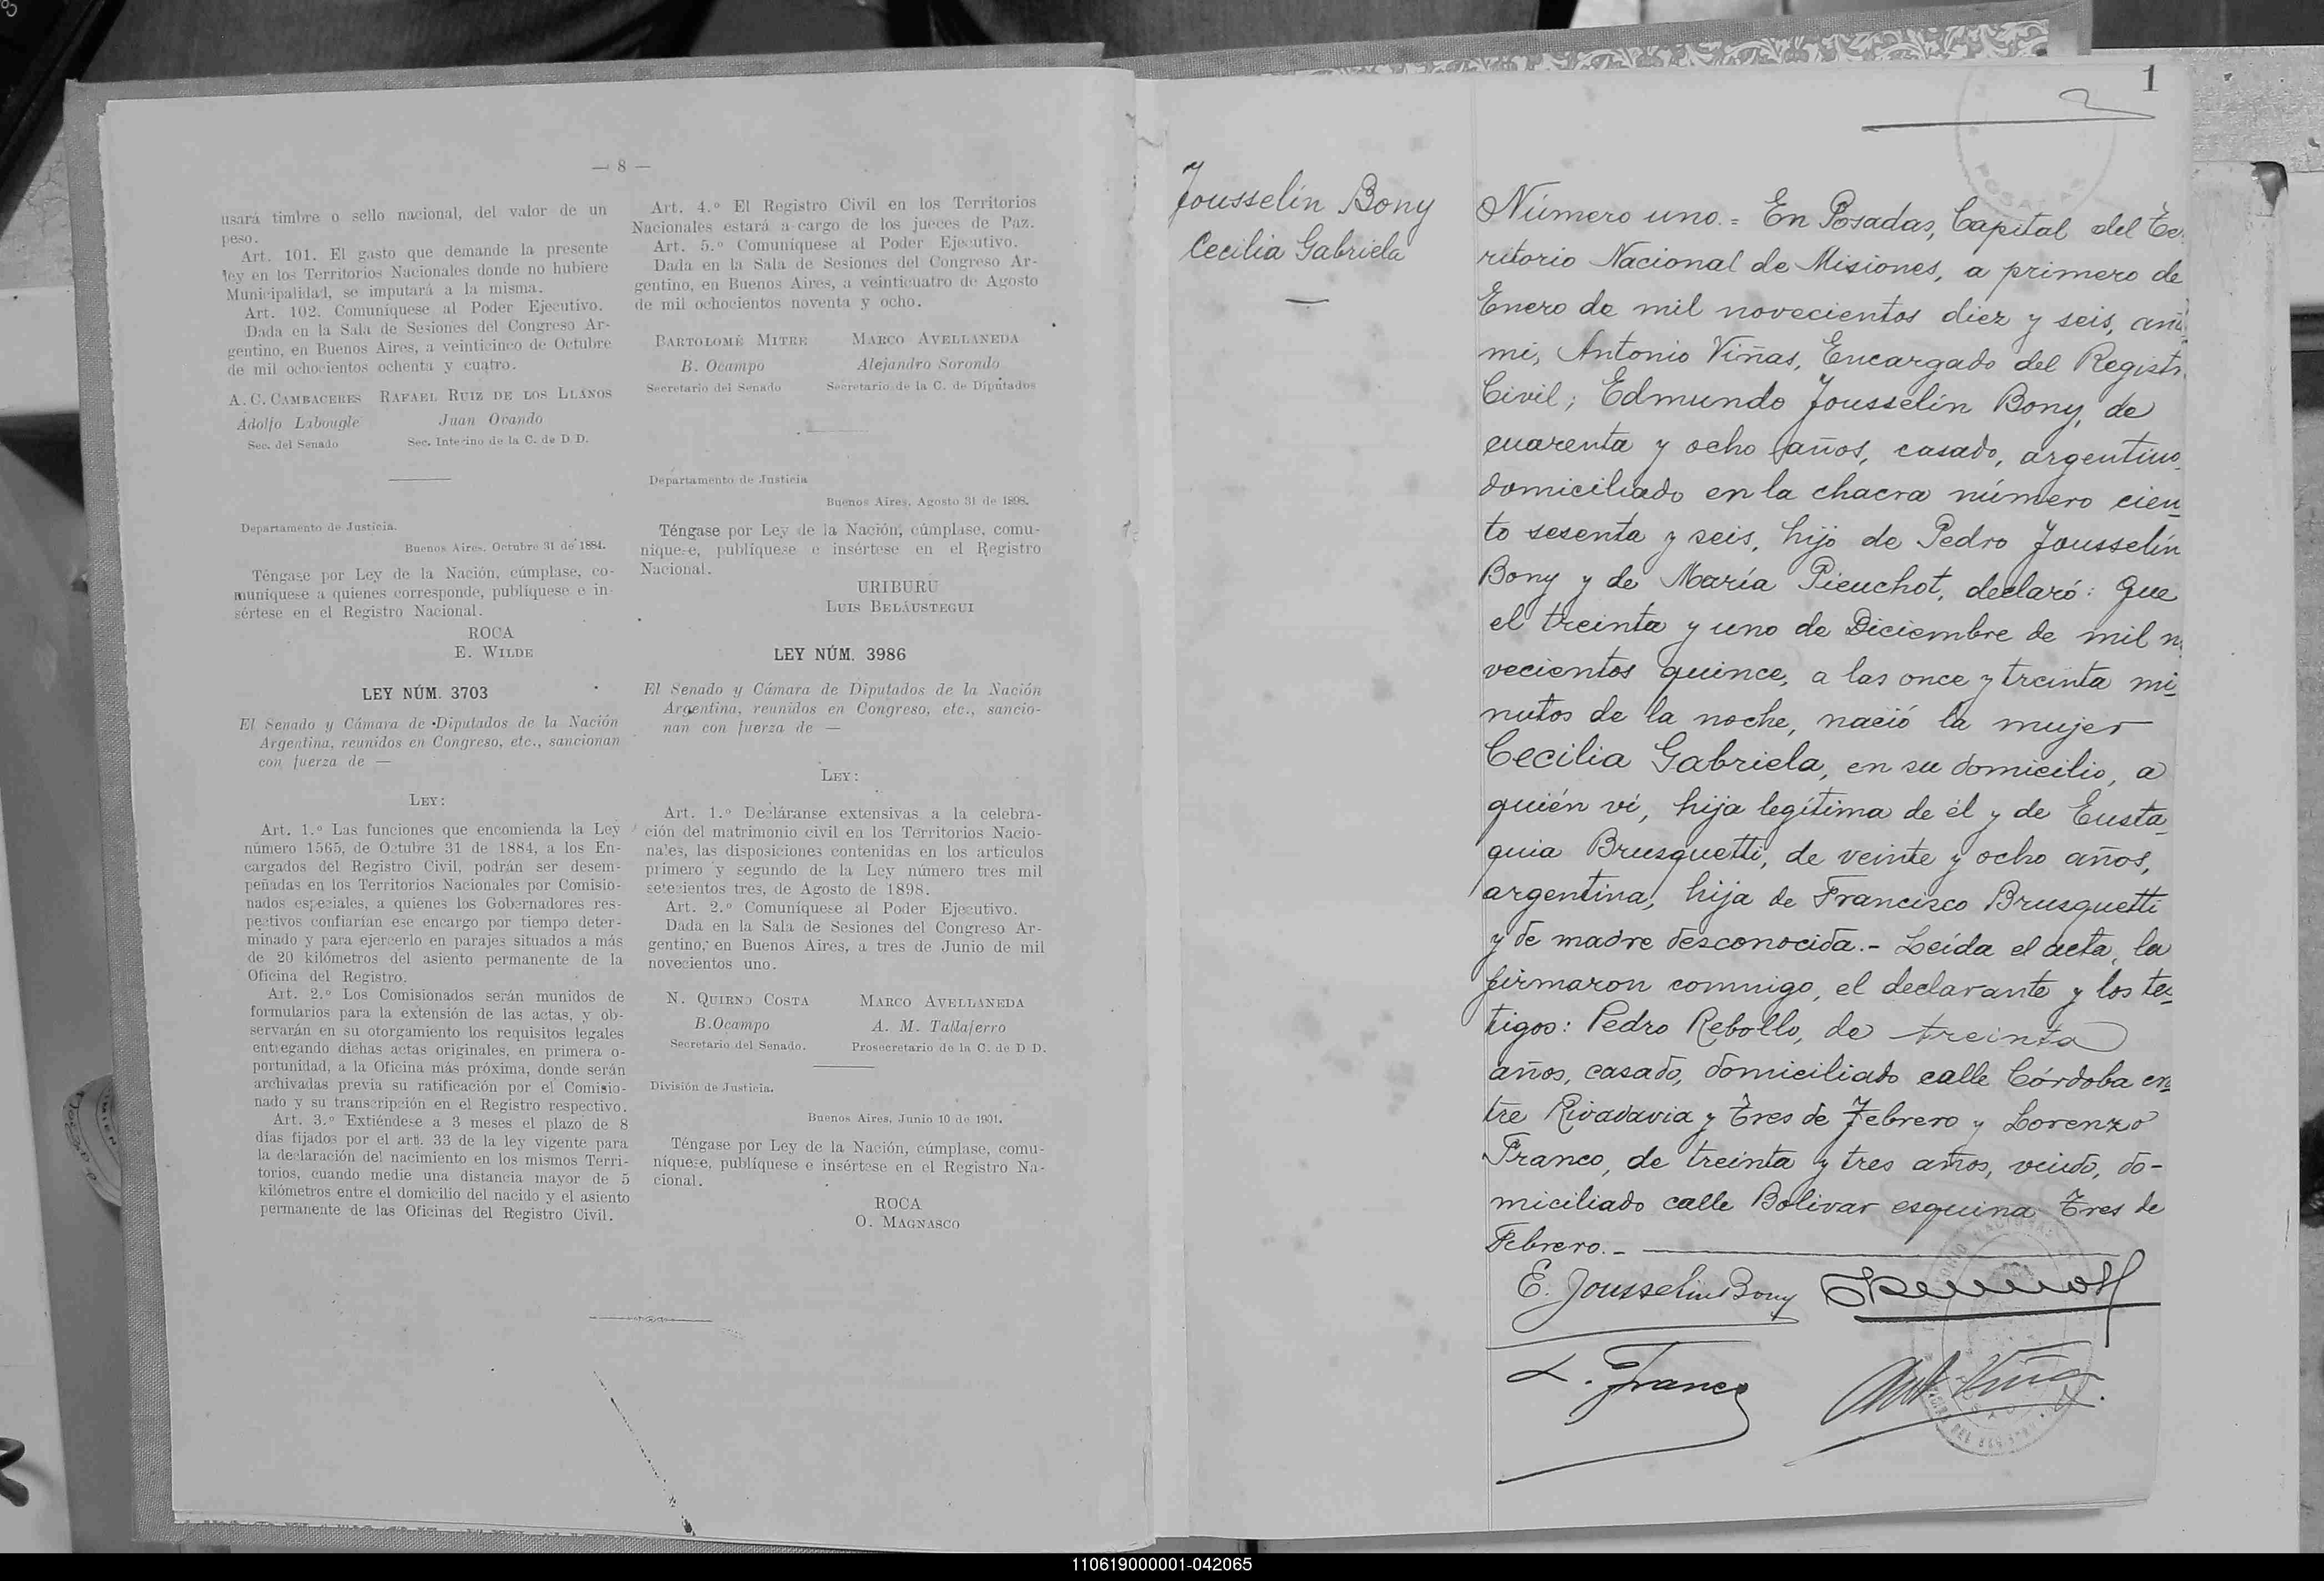 — 8 —
usará timbre o sello nacional, del valor de un
peso.
Art. 101. El gasto que demande la presente
ley en los Territorios Nacionales donde no hubiere
Municipalidad, se imputará a la misma.
Art. 102. Comuníquese al Poder Ejecutivo.
Dada en la Sala de Sesiones del Congreso Ar-
gentino, en Buenos Aires, a veinticinco de Octubre
de mil ochocientos ochenta y cuatro.
A. C. CAMBACERES RAFAEL RUIZ DE LOS LLANOS
Adolfo Labougle Juan Ovando
Sec. del Senado Sec. Interino de la C. de D D.
Departamento de Justicia.
Buenos Aires, Octubre 31 de 1884.
Téngase por Ley de la Nación, cúmplase, co-
muníquese a quienes corresponde, publíquese e in-
sértese en el Registro Nacional.
ROCA
E. WILDE
LEY NÚM. 3703
El Senado y Cámara de Diputados de la Nación
Argentina, reunidos en Congreso, etc., sancionan
con fuerza de —
LEY:
Art. 1.º Las funciones que encomienda la Ley
número 1565, de Octubre 31 de 1884, a los En-
cargados del Registro Civil, podrán ser desem-
peñadas en los Territorios Nacionales por Comisio-
nados especiales, a quienes los Gobernadores res-
pectivos confiarían ese encargo por tiempo deter-
minado y para ejercerlo en parajes situados a más
de 20 kilómetros del asiento permanente de la
Oficina del Registro.
Art. 2.º Los Comisionados serán munidos de
formularios para la extensión de las actas, y ob-
servarán en su otorgamiento los requisitos legales
entregando dichas actas originales, en primera o-
portunidad, a la Oficina más próxima, donde serán
archivadas previa su ratificación por el Comisio-
nado y su transcripción en el Registro respectivo.
Art. 3.º Extiéndese a 3 meses el plazo de 8
días fijados por el art. 33 de la ley vigente para
la declaración del nacimiento en los mismos Terri-
torios, cuando medie una distancia mayor de 5
kilómetros entre el domicilio del nacido y el asiento
permanente de las Oficinas del Registro Civil.
Art. 4.º El Registro Civil en los Territorios
Nacionales estará a cargo de los jueces de Paz.
Art. 5.º Comuníquese al Poder Ejecutivo.
Dada en la Sala de Sesiones del Congreso Ar-
gentino, en Buenos Aires, a veinticuatro de Agosto
de mil ochocientos noventa y ocho.
BARTOLOMÉ MITRE MARCO AVELLANEDA
B. Ocampo Alejandro Sorondo
Secretario del Senado Secretario de la C. de Diputados
Departamento de Justicia
Buenos Aires, Agosto 31 de 1898.
Téngase por Ley de la Nación, cúmplase, comu-
níquese, publíquese e insértese en el Registro
Nacional.
URIBURU
LUIS BELÁUSTEGUI
LEY NÚM. 3986
El Senado y Cámara de Diputados de la Nación
Argentina, reunidos en Congreso, etc., sancio-
nan con fuerza de —
LEY:
Art. 1.º Decláranse extensivas a la celebra-
ción del matrimonio civil en los Territorios Nacio-
nales, las disposiciones contenidas en los artículos
primero y segundo de la Ley número tres mil
setecientos tres, de Agosto de 1898.
Art. 2.º Comuníquese al Poder Ejecutivo.
Dada en la Sala de Sesiones del Congreso Ar-
gentino, en Buenos Aires, a tres de Junio de mil
novecientos uno.
N. QUIRNO COSTA MARCO AVELLANEDA
B. Ocampo A. M. Tallaferro
Secretario del Senado. Prosecretario de la C. de D D.
División de Justicia.
Buenos Aires, Junio 10 de 1901.
Téngase por Ley de la Nación, cúmplase, comu-
níquese, publíquese e insértese en el Registro Na-
cional.
ROCA
O. MAGNASCO
1
Jousselín Bony
Cecilia Gabriela
Número uno.= En Posadas, Capital del Te
ritorio Nacional de Misiones, a primero de
Enero de mil novecientos diez y seis, ante
mi, Antonio Viñas, Encargado del Registr
Civil; Edmundo Jousselín Bony, de
cuarenta y ocho años, casado, argentino,
domiciliado en la chacra número cien
to sesenta y seis, hijo de Pedro Jousselín
Bony y de María Pieuchot, declaró: Que
el treinta y uno de Diciembre de mil n
vecientos quince, a las once y treinta mi
nutos de la noche, nació la mujer
Cecilia Gabriela, en su domicilio, a
quién ví, hija legítima de él y de Eusta
quia Brusquetti, de veinte y ocho años,
argentina, hija de Francisco Brusquetti
y de madre desconocida.- Leída el acta, la
firmaron conmigo, el declarante y los tes
tigos: Pedro Rebollo, de treinta
años, casado, domiciliado calle Córdoba en
tre Rivadavia y Tres de Febrero y Lorenzo
Franco, de treinta y tres años, viudo, do-
miciliado calle Bolivar esquina Tres de
Febrero.-
E. Jousselin Bony
L. Franco
Ant Viñas
110619000001-042065